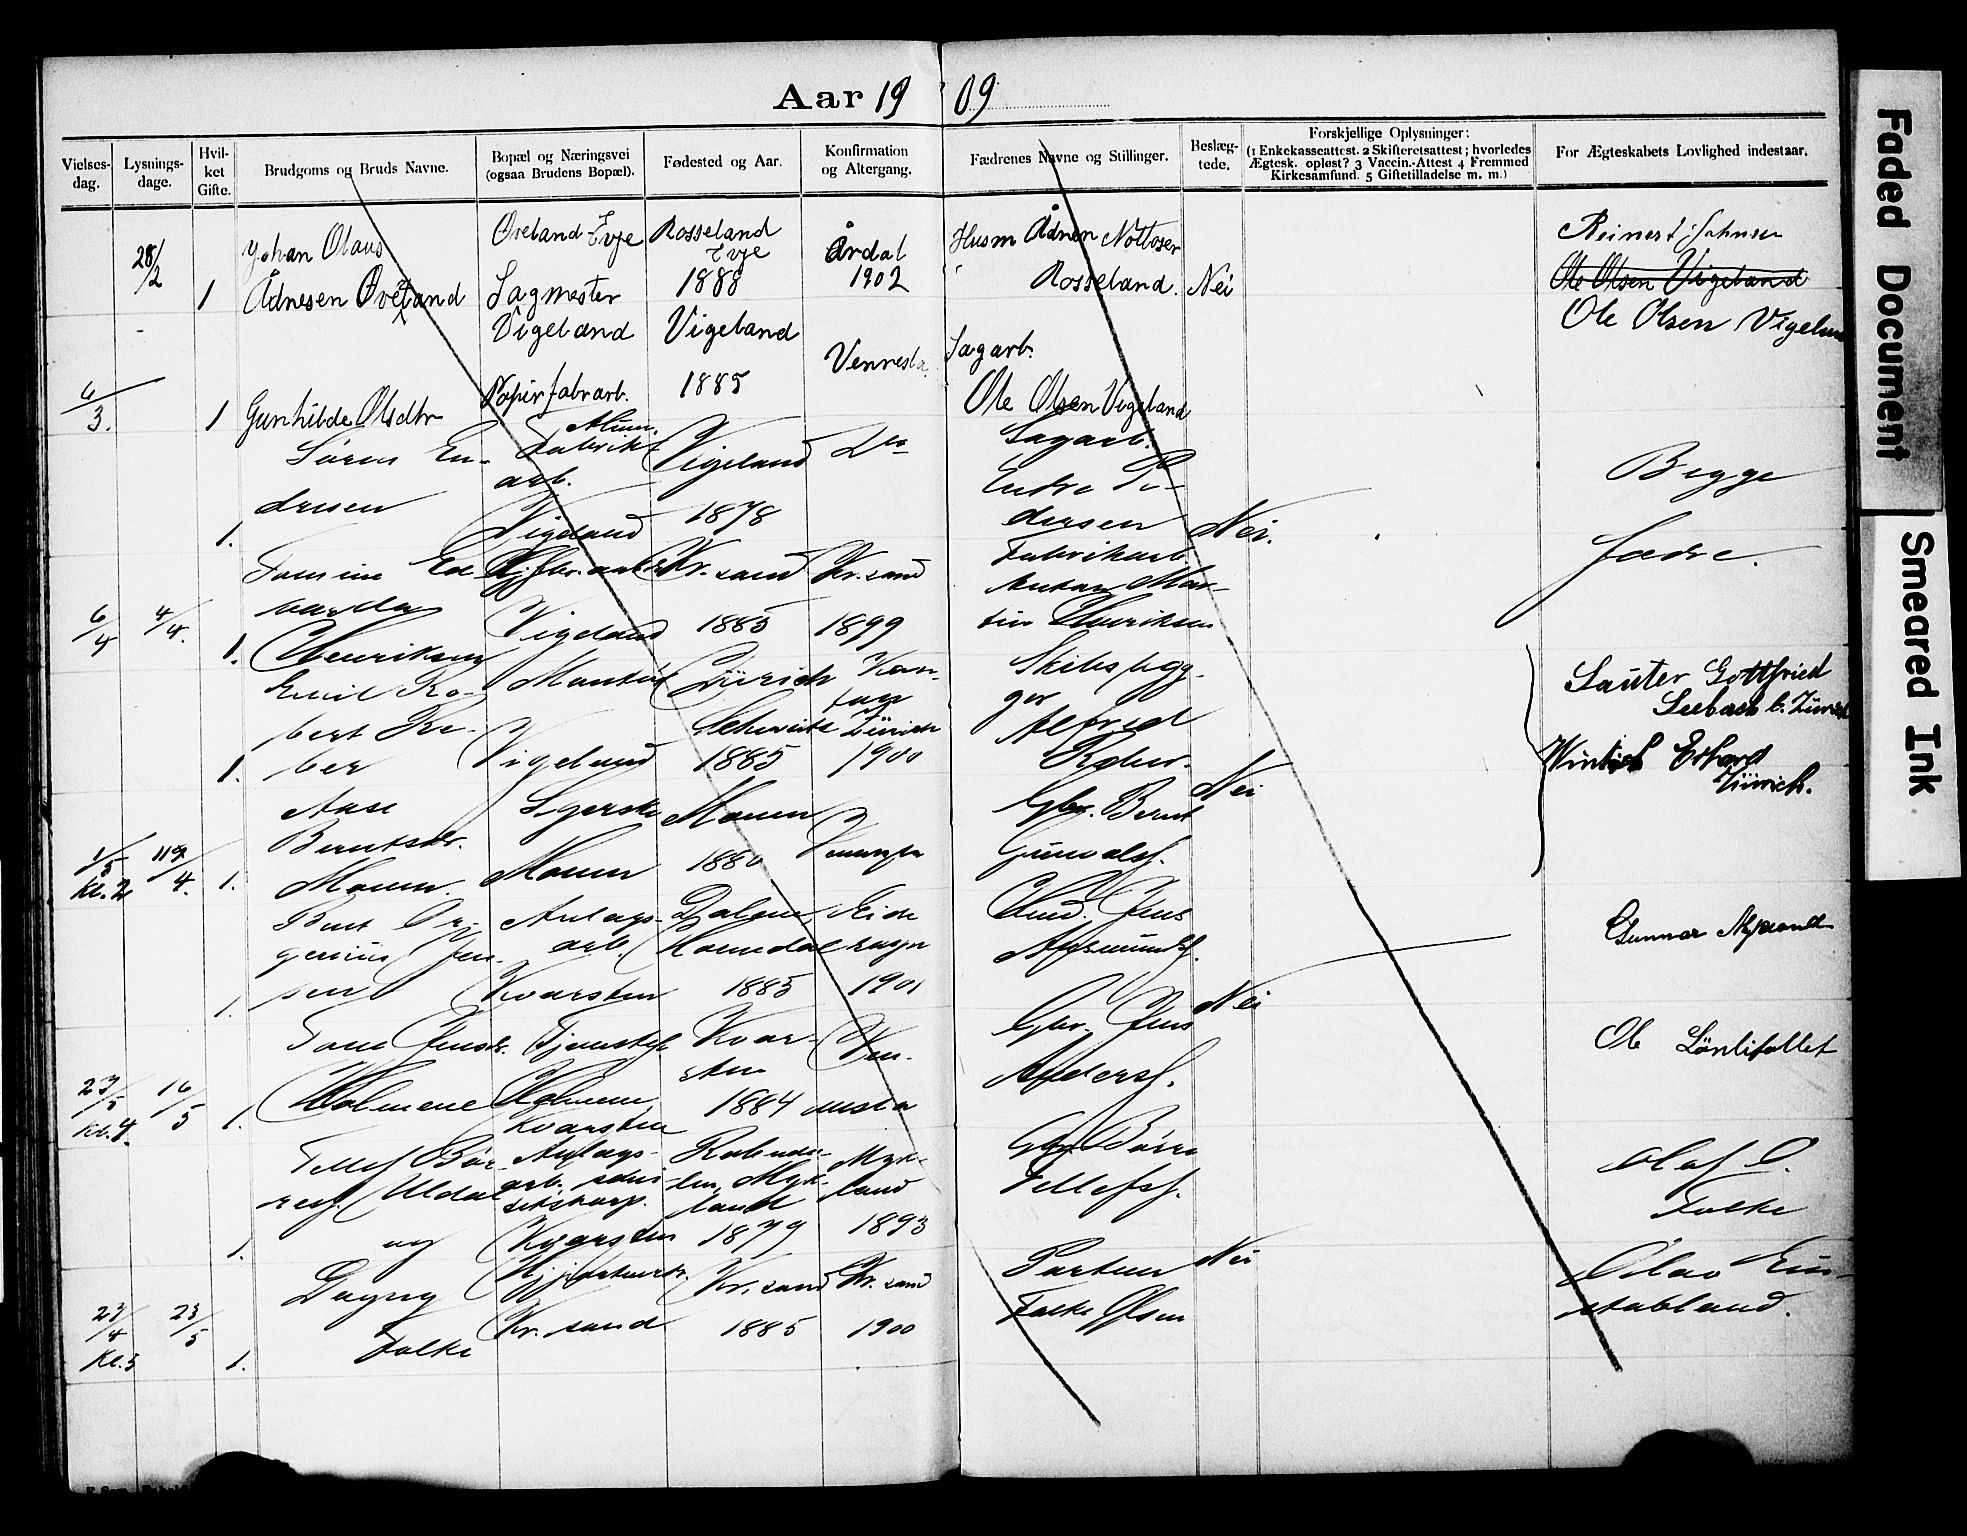 Aar 19 09
Vielses-dag.
Lysnings-dage.
Hvil-ket Gifte.
Brudgoms og Bruds Navne.
Bopæl og Næringsvei
(ogsaa Brudens Bopæl).
Fødested og Aar.
Konfirmation
og Altergang.
Fædrenes Navne og Stillinger.
Beslæg-
tede.
Forskjellige Oplysninger:
(1 Enkekasseattest. 2 Skifteretsattest; hvorledes
Ægtesk. opløst? 3 Vaccin.-Attest 4 Fremmed
Kirkesamfund. 5 Giftetilladelse m. m.)
For Ægteskabets Lovlighed indestaar,
28/2
1
Johan Olaus
Ådnesen Øveland
Øveland Evje
Sagmester
Vigeland
Rosseland
Evje
1888
Årdal
1902
Husm Ådnen
Rosseland.
Nei
Reinert Johnsen
Ole Olsen Vigeland
Ole Olsen Vigeland
6/3.
1
Gunhilde Olsdtr
Papirfabrarb.
Vigeland
1885
Vennesla
Sagarb.
Ole Olsen Vigeland
1.
Søren En-
dresen
Alum.
Fabrik
arb.
Vigeland
Vigeland
1878
Do
Sagarb.
Endre Pe-
dersen
Nei.
Begge
Fædre.
6/4
4/4.
1.
Tomine Ed-
varda
Henriksen
Vigeland
Kr.sand
1885
Kr.sand
1899
Fabrikarb.
Anton Mar-
tin Henriksen
1.
Emil Ro-
bert Ke-
ber
Montør
Vigeland
Zürich
Schweitz
1885
Zürich
1900
Skibsbyg-
ger
Alfred
Keber.
Nei
Sauter Gottfried
Seebach b. Zürich
Erhard
Zürich.
1/5
Kl. 2
1.
Aase
Berntsdr.
Moen.
Syerske
Moen
Moen
1880
Vennesla
Gbr. Bernt
Gunvalds.
1.
Anlags-
arb.
Kvarsten
1885
1901
Jens
Nei
Gunnar
23/5
Kl. 4.
16/5
1.
Tone Jensdr.
Holmene
Holmene
Kvarsten
Kvar-
sten
1884
Ven-
nesla
Gbr. Jens
Anders.
Ole Lønlifallet
1.
Tellef Bør-
res. Uldal
og
Anlags-
arb.
Kvarsten
Myk-
land
1879
Myk-
land
1893
Gbr Børre
Tellefs.
Nei
Olaf O.
Falke
23/4
Kl. 5
23/5
1.
Dagny
Falke
Kr. sand
Kr. sand
1885
Kr. sand
1900
Falke Olsen
Olav Ein-
stabland.
Faded Document
Smeared Ink